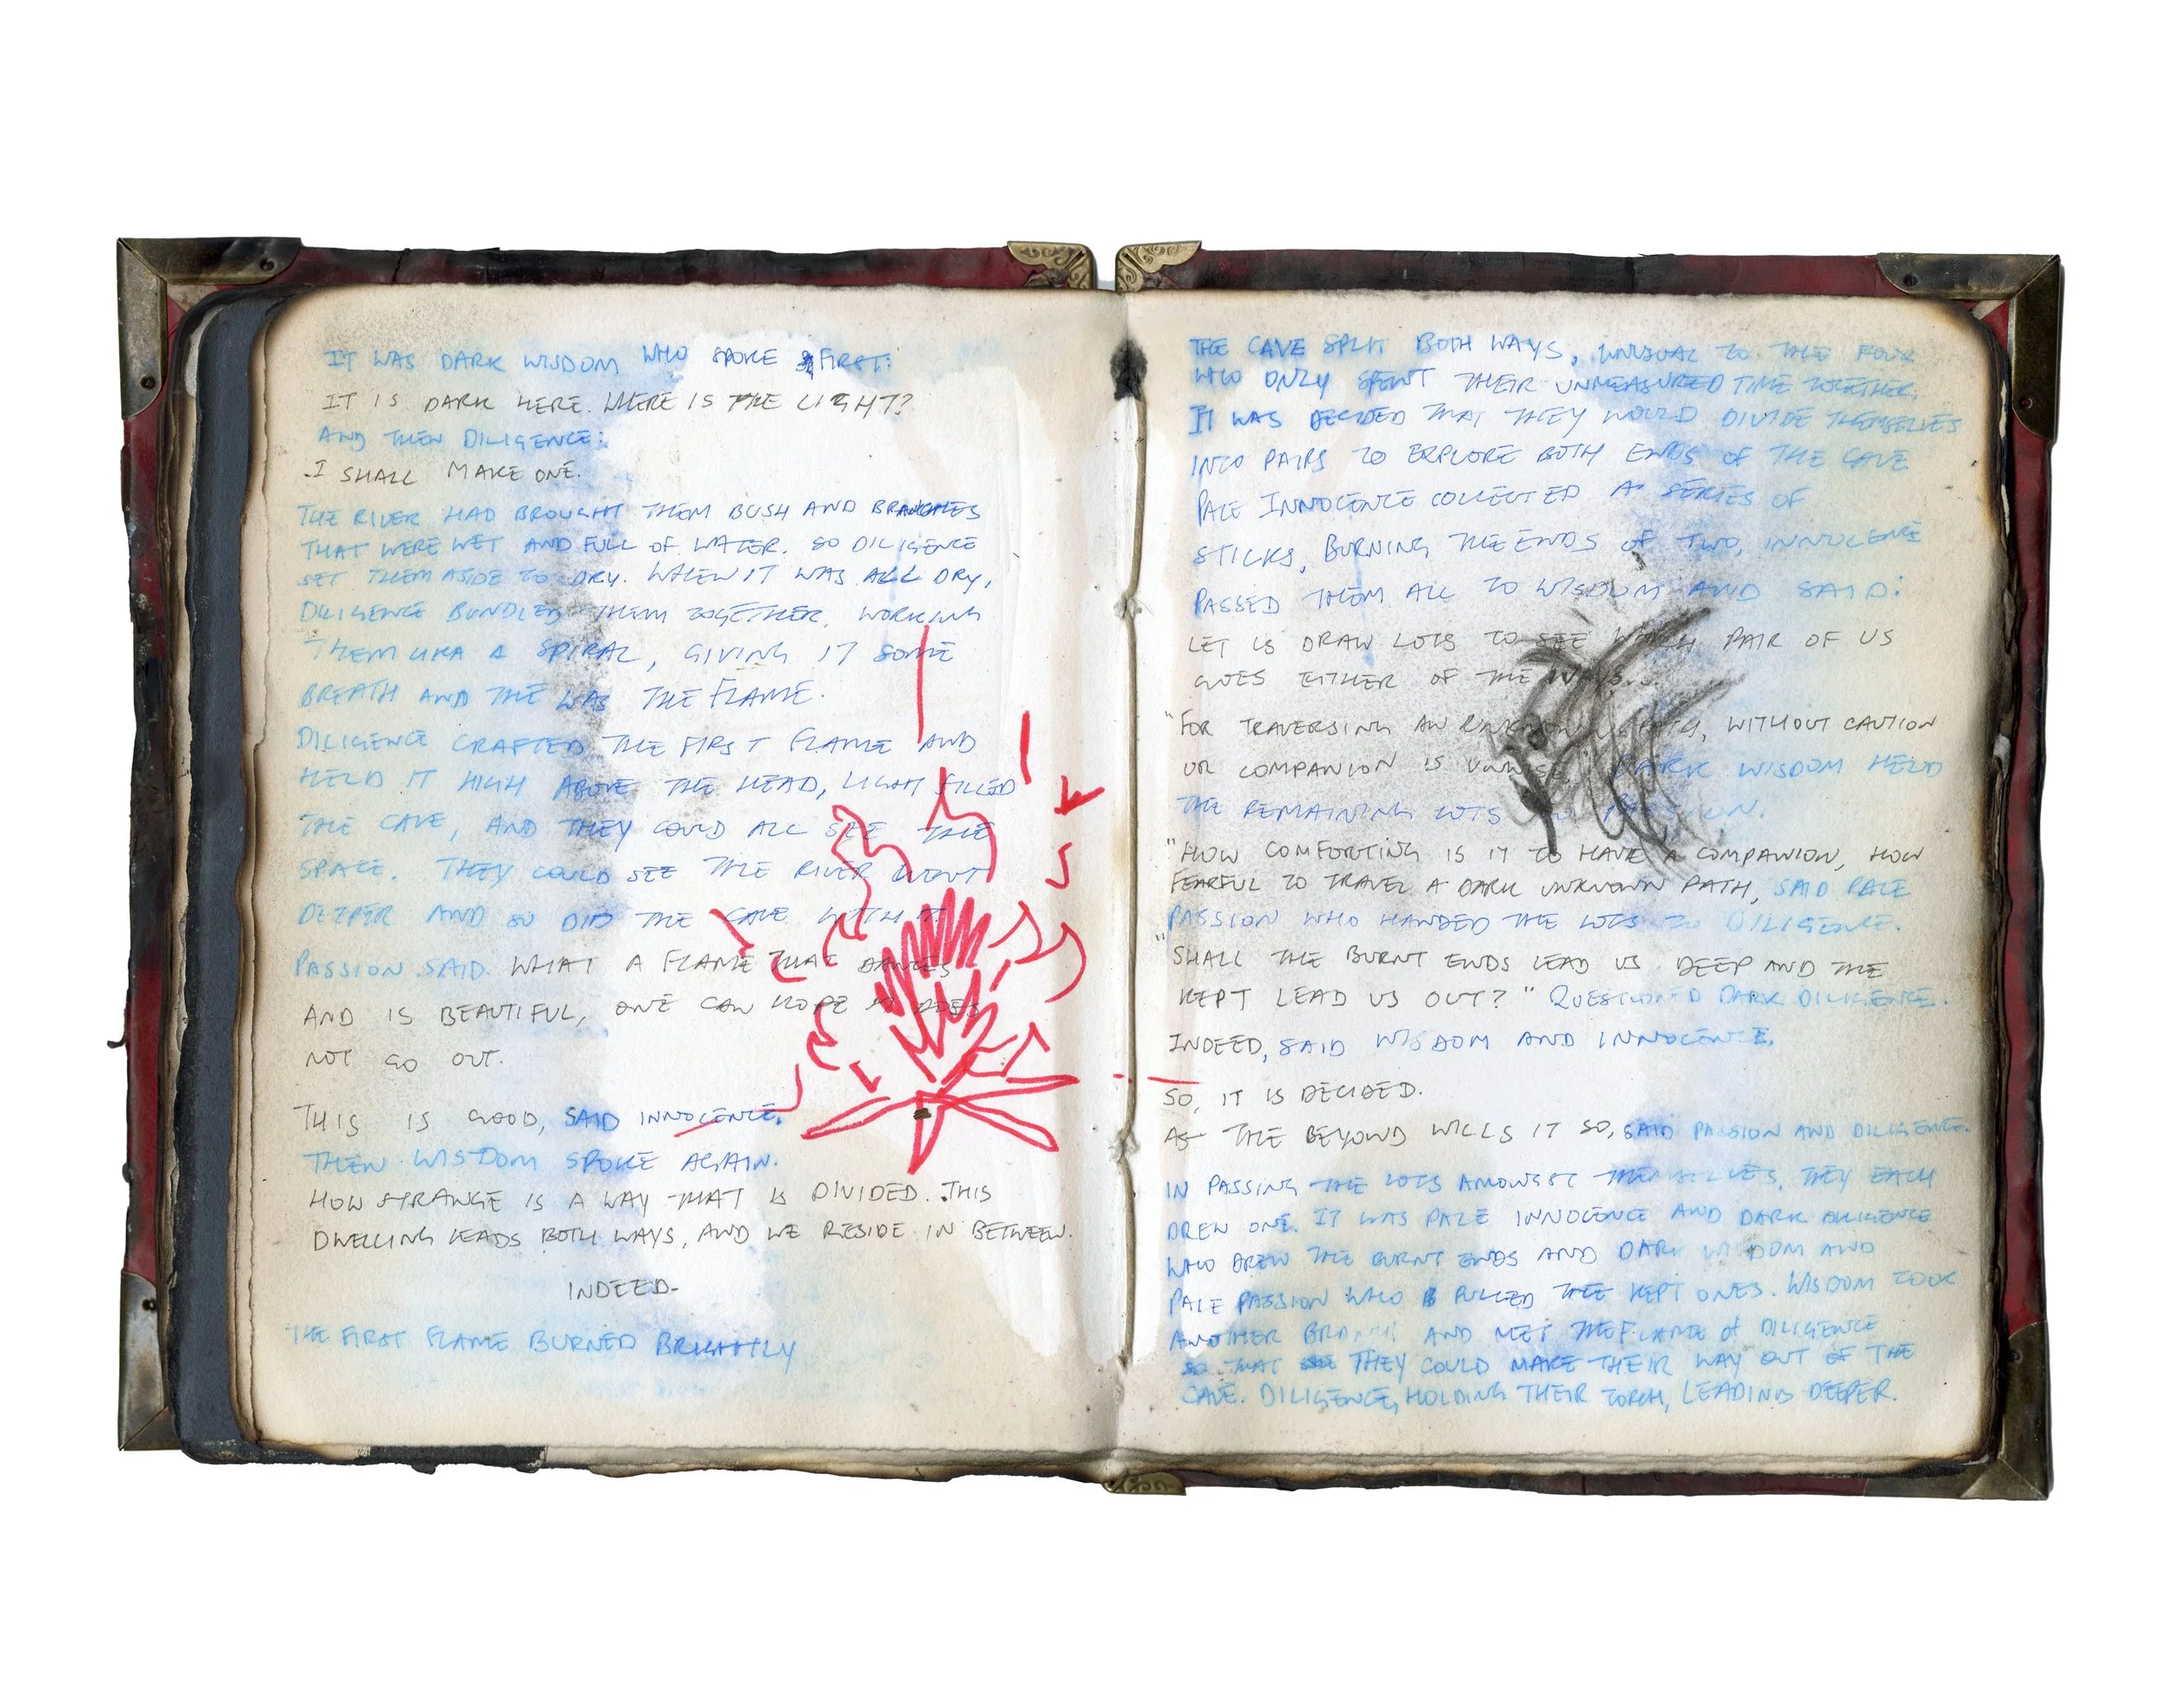 IT WAS DARK WISDOM WHO SPOKE FIRST:
IT IS DARK HERE. WHERE IS THE LIGHT?
AND THEN DILIGENCE:
I SHALL MAKE ONE.
THE RIVER HAD BROUGHT THEM BUSH AND BRANCHES
THAT WERE WET AND FULL OF WATER. SO DILIGENCE
SET THEM ASIDE TO DRY. WHEN IT WAS ALL DRY,
DILIGENCE BUNDLED THEM TOGETHER, WORKING
THEM LIKA A SPIRAL, GIVING IT SOME
BREATH AND THE WAS THE FLAME.
DILIGENCE CRAFTED THE FIRST FLAME AND
HELD IT HIGH ABOVE THE HEAD, LIGHT FILLED
THE CAVE, AND THEY COULD ALL SEE THE
SPACE. THEY COULD SEE THE RIVER WENT
DEEPER AND SO DID THE CAVE WITH IT.
PASSION SAID. WHAT A FLAME THAT DANCES
AND IS BEAUTIFUL, ONE CAN HOPE IT DOES
NOT GO OUT.
THIS IS GOOD, SAID INNOCENCE.
THEN WISDOM SPOKE AGAIN.
HOW STRANGE IS A WAY THAT IS DIVIDED. THIS
DWELLING LEADS BOTH WAYS, AND WE RESIDE IN BETWEEN.
INDEED-
THE FIRST FLAME BURNED BRIGHTLY
THE CAVE SPLIT BOTH WAYS, UNUSUAL TO THE FOUR
WHO ONLY SPENT THEIR UNMEASURED TIME TOGETHER.
IT WAS DECIDED THAT THEY WOULD DIVIDE THEMSELVES
INTO PAIRS TO EXPLORE BOTH ENDS OF THE CAVE.
PALE INNOCENCE COLLECTED A SERIES OF
STICKS, BURNING THE ENDS OF TWO, INNOCENCE
PASSED THEM ALL TO WISDOM AND SAID:
LET US DRAW LOTS TO SEE WHICH PAIR OF US
GOES EITHER OF THE WAYS.
"FOR TRAVERSING AN UNKNOWN PATH, WITHOUT CAUTION
OR COMPANION IS UNWISE," DARK WISDOM HELD
THE REMAINING LOTS TO PASSION.
"HOW COMFORTING IS IT TO HAVE A COMPANION, HOW
FEARFUL TO TRAVEL A DARK UNKNOWN PATH, SAID PALE
PASSION WHO HANDED THE LOTS TO DILIGENCE.
"SHALL THE BURNT ENDS LEAD US DEEP AND THE
KEPT LEAD US OUT?" QUESTIONED DARK DILIGENCE.
INDEED, SAID WISDOM AND INNOCENCE.
SO, IT IS DECIDED.
AS THE BEYOND WILLS IT SO, SAID PASSION AND DILIGENCE.
IN PASSING THE LOTS AMONGST THEMSELVES, THEY EACH
DREW ONE. IT WAS PALE INNOCENCE AND DARK DILIGENCE
WHO DREW THE BURNT ENDS AND DARK WISDOM AND
PALE PASSION WHO PULLED THE KEPT ONES. WISDOM TOOK
ANOTHER BRANCH AND MET THE FLAME OF DILIGENCE
SO THAT THEY COULD MAKE THEIR WAY OUT OF THE
CAVE. DILIGENCE, HOLDING THEIR TORCH, LEADING DEEPER.